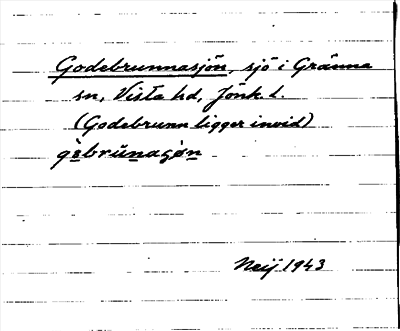 Godebrunnasjön, sjö i Gränna
sn, Vista hd, Jönk. l.
(Godebrunn ligger invid)
gɵbrùnaʂøn
Neij 1943